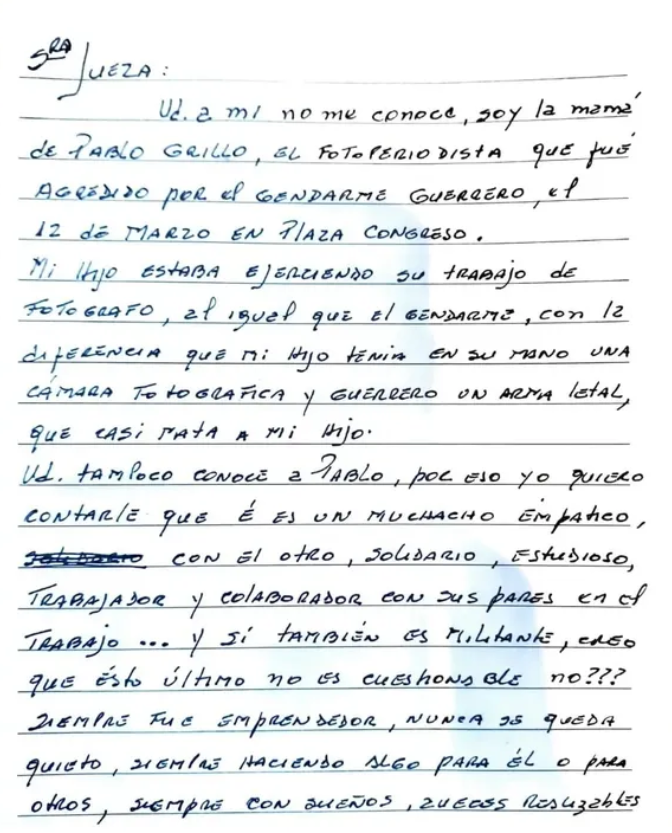 SRA JUEZA:
Ud. a mi no me conoce, soy la mamá
de PABLO GRILLO, EL FOTOPERIODISTA que fué
AGREDIDO por el GENDARME GUERRERO, el
12 de MARZO EN PLAZA CONGRESO.
Mi Hijo ESTABA EJERCIENDO su TRABAJO de
FOTOGRAFO, al igual que el GENDARME, con la
diFERENCIA que Mi Hijo tenia EN SU MANO UNA
CÁMARA FOTOGRAFICA y GUERRERO UN ARMA letAL,
que CASI MATA A Mi Hijo.
Ud. tampoco CONOCE a PABLO, por eso yo quiero
CONTARLE que É ES UN MUCHACHO EMPATICO,
CON El otro, SOLIDARIO, ESTUDIOSO,
TRABAJADOR y COLABORADOR CON SUS PARES en el
TRABAJO ... y SÍ TAMBIÉN ES MILITANTE, CREO
que ésto último no es cuestionable no???
SIEMPRE FUE EMPRENDEDOR, NUNCA SE QUEDA
quieto, SIEMPRE HACIENDO ALGO PARA ÉL O PARA
otros, SIEMPRE CON SUEÑOS, aveces REALizables